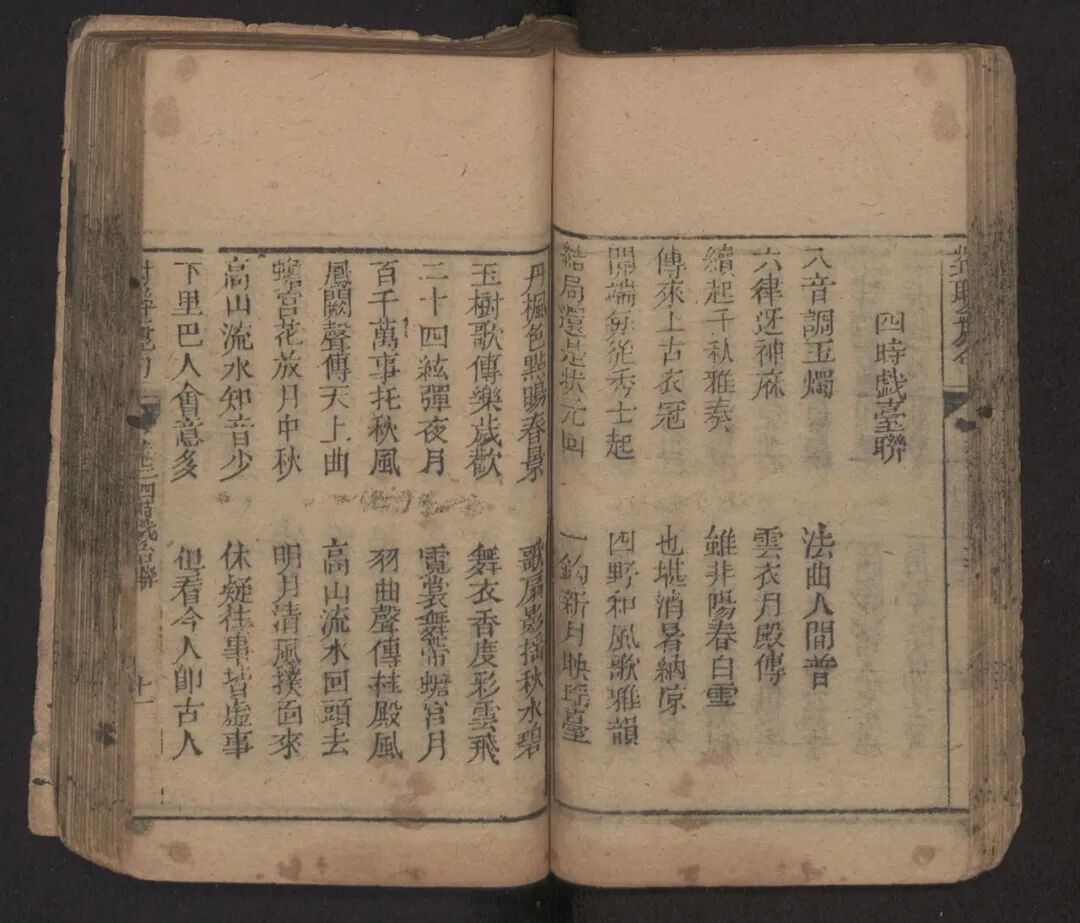 四時戯臺聯
八音調玉燭　法曲人間普
六律迓神庥　雲衣月殿傳
續起千秋雅奏　雖非陽春白雪
傳來上古衣冠　也堪消暑納凉
開端每從秀士起　四野和風歌雅韻
結局還是狀元回　一鈎新月映瑶臺
丹楓色點陽春景　歌扇影摇秋水碧
玉樹歌傳樂歲歡　舞衣香度彩雲飛
二十四絃彈夜月　霓裳舞蟾宫月
百千萬事托秋風　羽曲聲傳桂殿風
鳳闕聲傳天上曲　高山流水回頭去
蟾宮花放月中秋　明月清風撲面來
高山流水知音少　休疑往事皆虚事
下里巴人會意多　但看今人即古人
四時戯台聯　十一